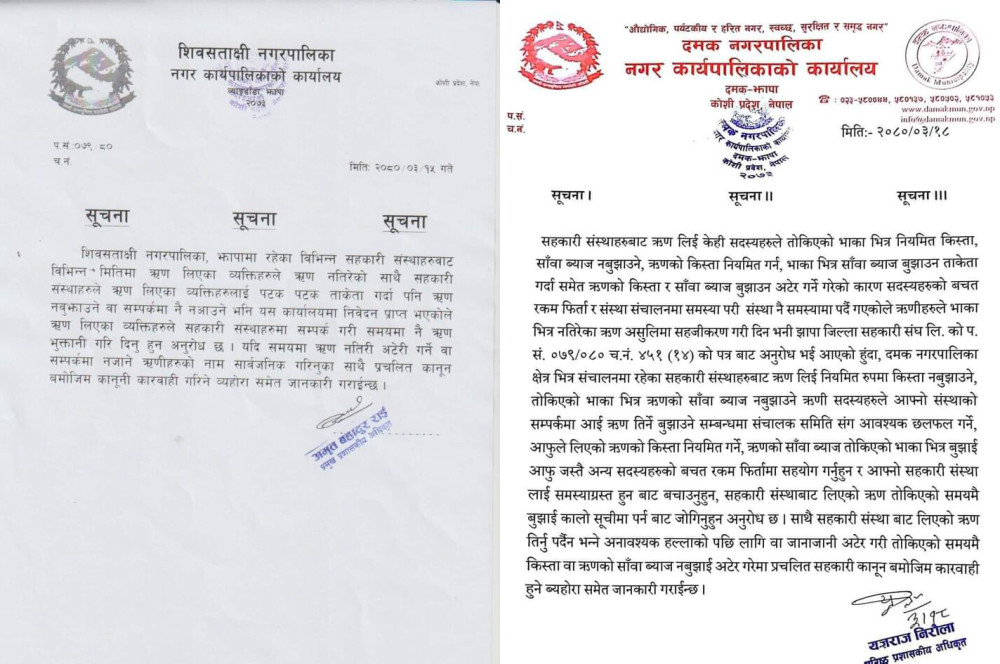 शिवसताक्षी नगरपालिका
नगर कार्यपालिकाको कार्यालय
झापा
२०७३
कोशी प्रदेश, नेपा
प.सं.:०७९.८०
च.नं.
मिति: २०८०/०३/१५ गते
सूचना सूचना सूचना
शिवसताक्षी नगरपालिका, झापामा रहेका विभिन्न सहकारी संस्थाहरुबाट
विभिन्न मितिमा ऋण लिएका व्यक्तिहरुले ऋण नतिरेको साथै सहकारी
संस्थाहरुले ऋण लिएका व्यक्तिहरुलाई पटक पटक ताकेता गर्दा पनि ऋण
नवुझाउने वा सम्पर्कमा नै नआउने भनि यस कार्यालयमा निवेदन प्राप्त भएकोले
ऋण लिएका व्यक्तिहरुले सहकारी संस्थाहरुमा सम्पर्क गरी समयमा नै ऋण
भुक्तानी गरि दिनु हुन अनुरोध छ । यदि समयमा ऋण नतिरी अटेरी गर्ने वा
सम्पर्कमा नजाने ऋणीहरुको नाम सार्वजनिक गरिनुका साथै प्रचलित कानून
बमोजिम कानूनी कारवाही गरिने व्यहोरा समेत जानकारी गराईन्छ ।
अमृत बहादुर राई
प्रमुख प्रशासकीय अधिकृत
"औद्योगिक, पर्यटकीय र हरित नगर, स्वच्छ, सुरक्षित र समृद्ध नगर"
दमक नगरपालिका
नगर कार्यपालिकाको कार्यालय
दमक-झापा
कोशी प्रदेश, नेपाल
Damak Municipality
☎ : ०२३-५८००४४, ५८०१३७, ५८०५०२, ५८१५७३
www.damakmun.gov.np
info@damakmun.gov.np
प.सं.
च.नं.
मिति:- २०८०/०३/१८
दमक नगरपालिका
नगर कार्यपालिकाको कार्यालय
दमक-झापा
कोशी प्रदेश, नेपाल
२०७३
सूचना । सूचना ॥ सूचना ॥।
सहकारी संस्थाहरुबाट ऋण लिई केही सदस्यहरुले तोकिएको भाका भित्र नियमित किस्ता,
साँवा ब्याज नबुझाउने, ऋणको किस्ता नियमित गर्न, भाका भित्र साँवा ब्याज बुझाउन ताकेता
गर्दा समेत ऋणको किस्ता र साँवा ब्याज बुझाउन अटेर गर्ने गरेको कारण सदस्यहरुको बचत
रकम फिर्ता र संस्था संचालनमा समस्या परी संस्था नै समस्यामा पर्दै गएकोले ऋणीहरुले भाका
भित्र नतिरेका ऋण असुलिमा सहजीकरण गरी दिन भनी झापा जिल्ला सहकारी संघ लि. को प.
सं. ०७९/०८० च.नं. ४५१ (१४) को पत्र बाट अनुरोध भई आएको हुंदा, दमक नगरपालिका
क्षेत्र भित्र संचालनमा रहेका सहकारी संस्थाहरुबाट ऋण लिई नियमित रुपमा किस्ता नबुझाउने,
तोकिएको भाका भित्र ऋणको साँवा ब्याज नबुझाउने ऋणी सदस्यहरुले आफ्नो संस्थाको
सम्पर्कमा आई ऋण तिर्ने बुझाउने सम्बन्धमा संचालक समिति संग आवश्यक छलफल गर्ने,
आफुले लिएको ऋणको किस्ता नियमित गर्ने, ऋणको साँवा ब्याज तोकिएको भाका भित्र बुझाई
आफु जस्तै अन्य सदस्यहरुको बचत रकम फिर्तामा सहयोग गर्नुहुन र आफ्नो सहकारी संस्था
लाई समस्याग्रस्त हुन बाट बचाउनुहुन, सहकारी संस्थाबाट लिएको ऋण तोकिएको समयमै
बुझाई कालो सूचीमा पर्न बाट जोगिनुहुन अनुरोध छ । साथै सहकारी संस्था बाट लिएको ऋण
तिर्नु पर्दैन भन्ने अनावश्यक हल्लाको पछि लागि वा जानाजानी अटेर गरी तोकिएको समयमै
किस्ता वा ऋणको साँवा ब्याज नबुझाई अटेर गरेमा प्रचलित सहकारी कानून बमोजिम कारवाही
हुने ब्यहोरा समेत जानकारी गराईन्छ ।
३/१८
यज्ञराज निरौला
प्रशासकीय अधिकृत